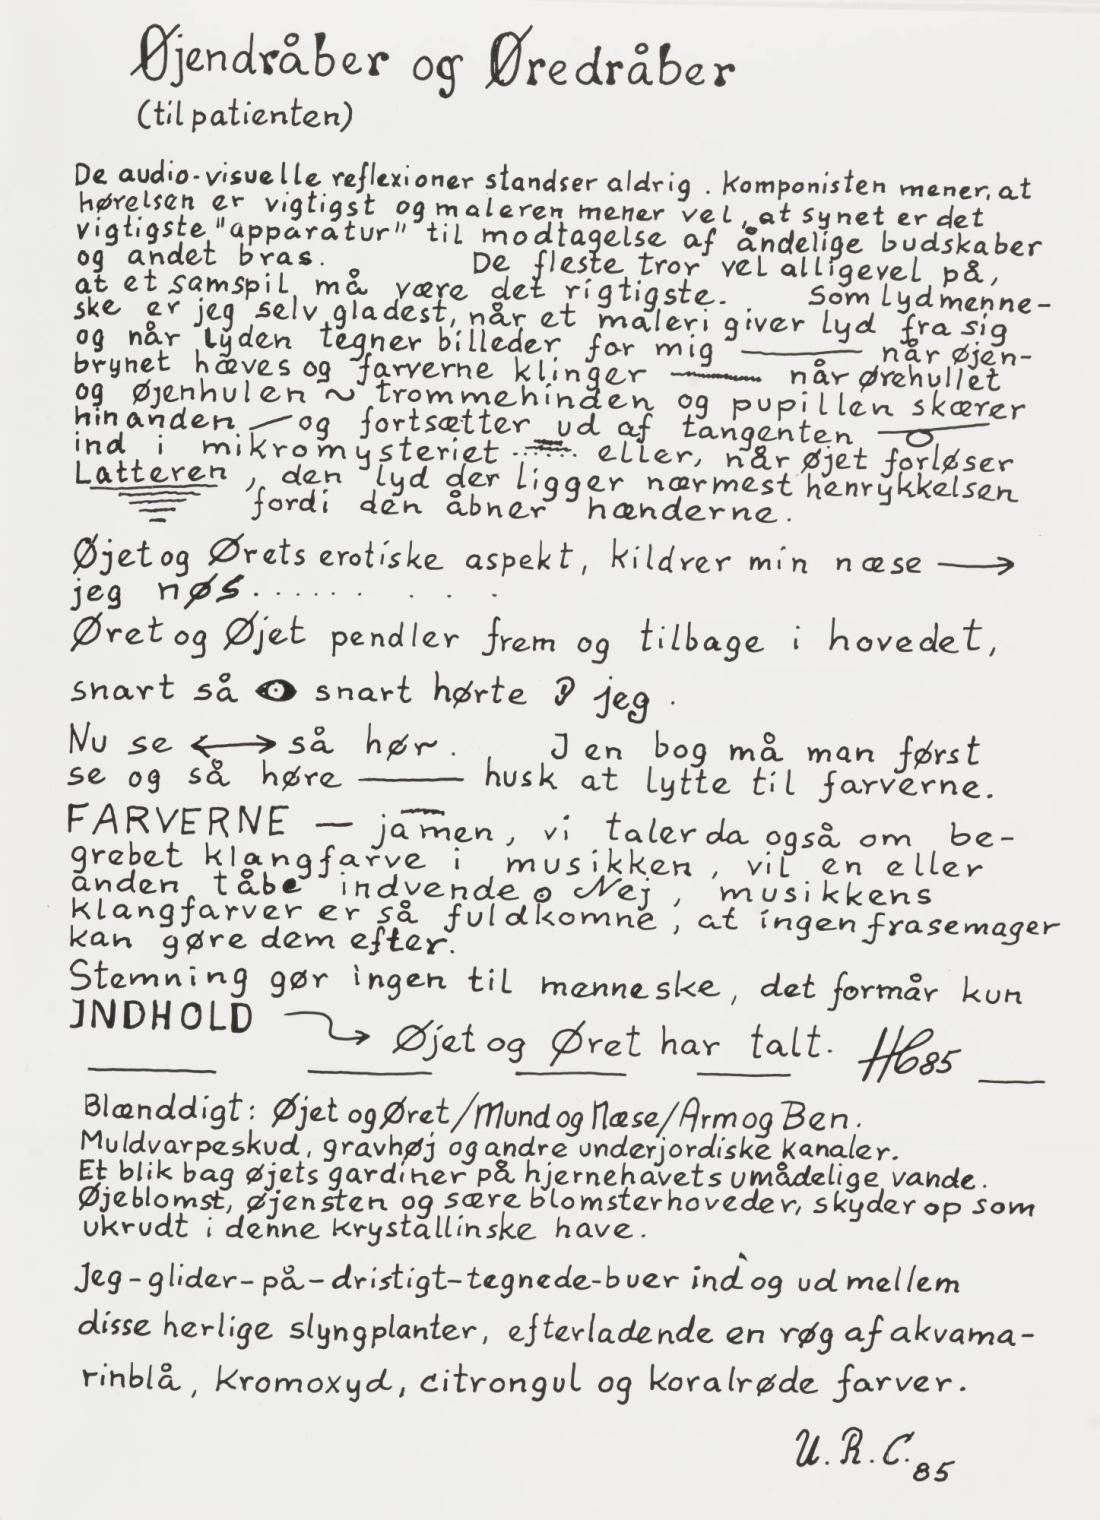 Øjendråber og Øredråber
(til patienten)
De audio-visuelle reflexioner standser aldrig. Komponisten mener, at
hørelsen er vigtigst og maleren mener vel, at synet er det
vigtigste "apparatur" til modtagelse af åndelige budskaber
og andet bras. De fleste tror vel alligevel på,
at et samspil må være det rigtigste. Som lydmenne-
ske er jeg selv gladest, når et maleri giver lyd fra sig
og når lyden tegner billeder for mig — når øjen-
brynet hæves og farverne klinger — når ørehullet
og øjenhulen ~ trommehinden og pupillen skærer
hinanden — og fortsætter ud af tangenten
ind i mikromysteriet ...... eller, når øjet forløser
Latteren, den lyd der ligger nærmest henrykkelsen
fordi den åbner hænderne.
Øjet og Ørets erotiske aspekt, kildrer min næse →
jeg nøs.........
Øret og Øjet pendler frem og tilbage i hovedet,
snart så snart hørte jeg.
Nu se ↔ så hør. I en bog må man først
se og så høre — husk at lytte til farverne.
FARVERNE — jamen, vi taler da også om be-
grebet klangfarve i musikken, vil en eller
anden tåbe indvende. Nej, musikkens
klangfarver er så fuldkomne, at ingen frasemager
kan gøre dem efter.
Stemning gør ingen til menneske, det formår kun
INDHOLD → Øjet og Øret har talt. HC85
Blænddigt: Øjet og Øret/Mund og Næse/Arm og Ben.
Muldvarpeskud, gravhøj og andre underjordiske kanaler.
Et blik bag øjets gardiner på hjernehavets umådelige vande.
Øjeblomst, øjensten og sære blomsterhoveder, skyder op som
ukrudt i denne krystallinske have.
Jeg-glider-på-dristigt-tegnede-buer ind og ud mellem
disse herlige slyngplanter, efterladende en røg af akvama-
rinblå, kromoxyd, citrongul og koralrøde farver.
U.R.C. 85